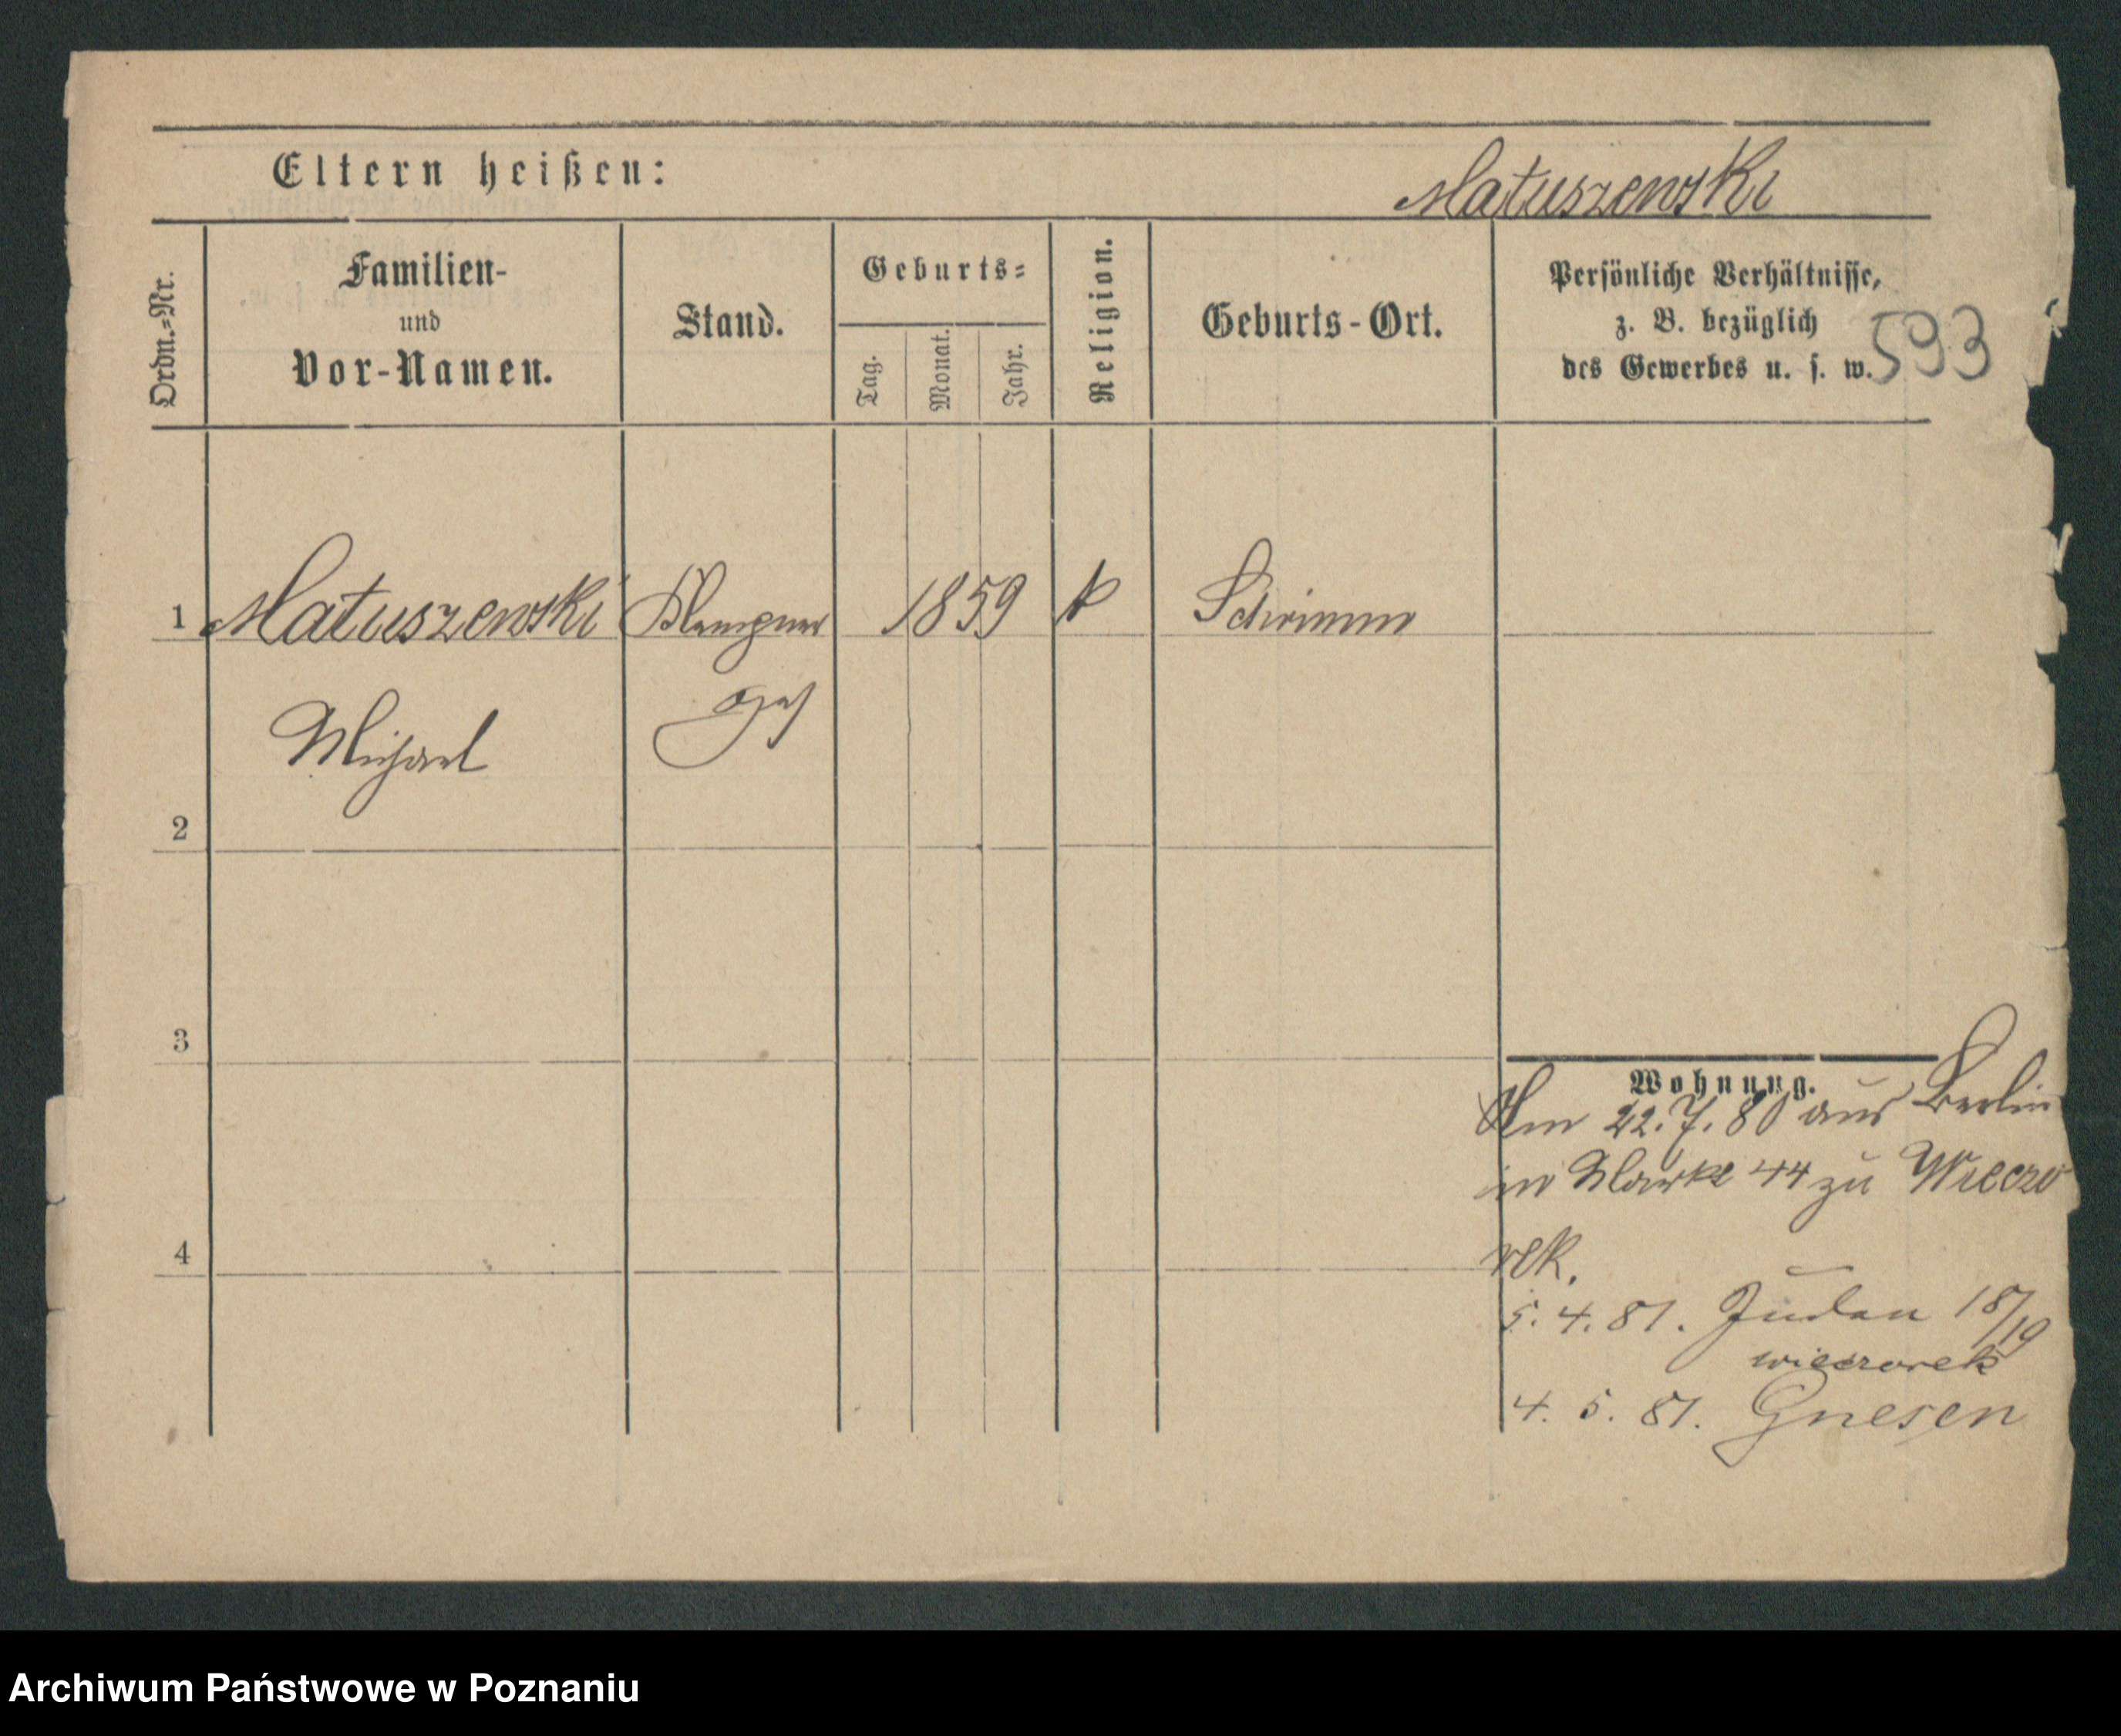 Eltern heißen:
Matuszewski
Ordn.=Nr.
Familien-
und
Vor-Namen.
Stand.
Geburts=
Tag.
Monat.
Jahr.
Religion.
Geburts-Ort.
Persönliche Verhältnisse,
z. B. bezüglich
des Gewerbes u. s. w.
593
1 Matuszewski Klempner 1859 k Schrimm
Michael Ges
2
3
4
Wohnung.
Am 22.7.80 aus Berlin
im Markt 44 zu Wieczo
rek.
5.4.81. Juden 18/19
wieczorek
4. 5. 81. Gnesen
Archiwum Państwowe w Poznaniu